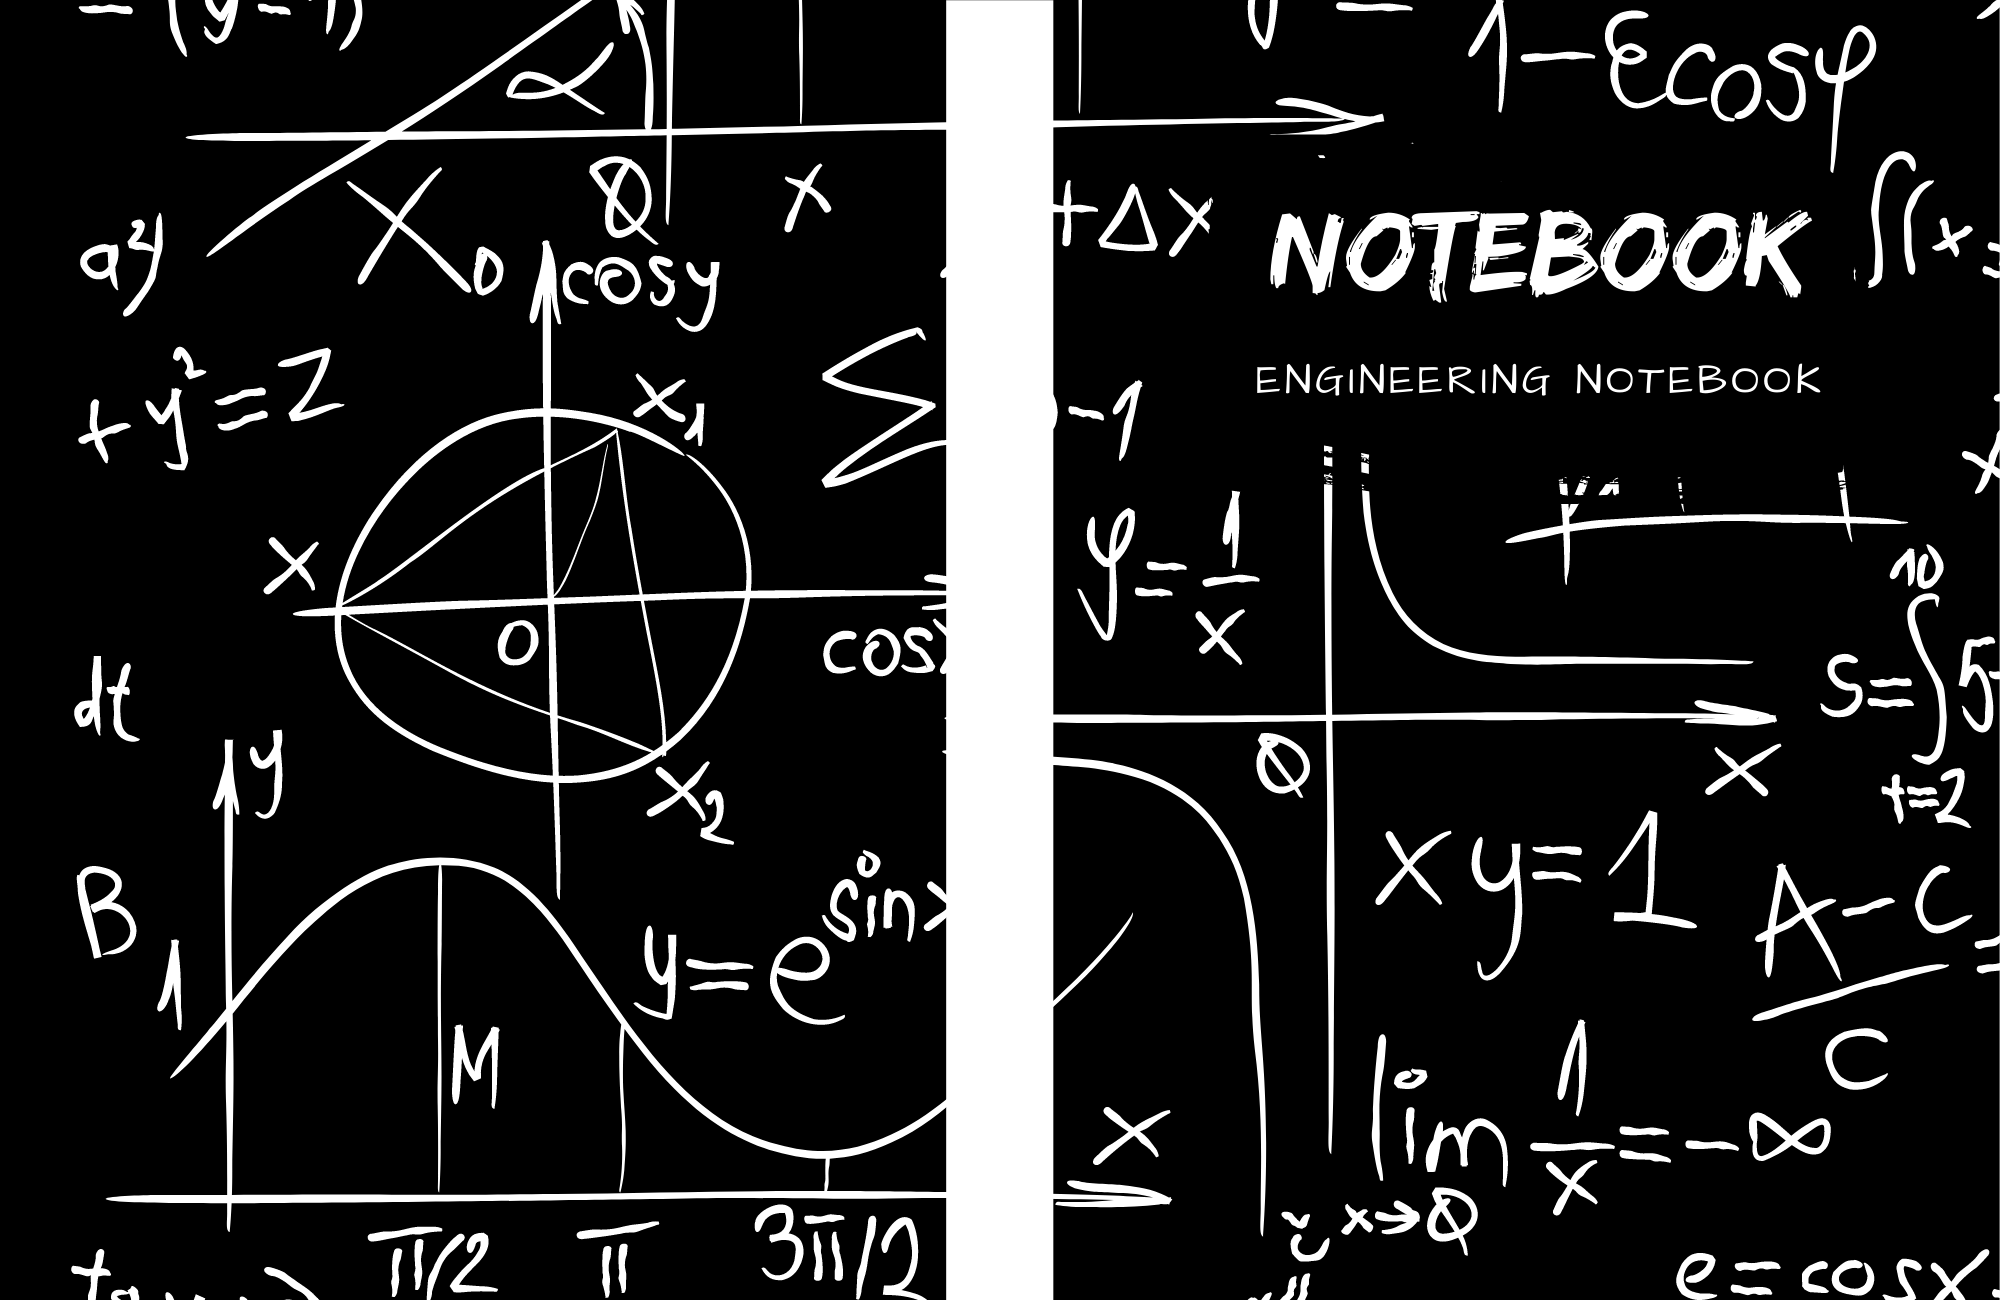 α
X₀
0
x
a²y
cosy
+ y² = 2
x₁
Σ
x
0
cos
dt
y
x₂
B
1
y = e^sinx
M
π/2
π
3π/2
1 - εcosφ
+ Δx
NOTEBOOK
∫(x
ENGINEERING NOTEBOOK
-1
φ = 1/x
10
S = ∫ 5
t=2
0
x
xy = 1
A - C
C
lim 1/x = -∞
x→0
x
e = cosx